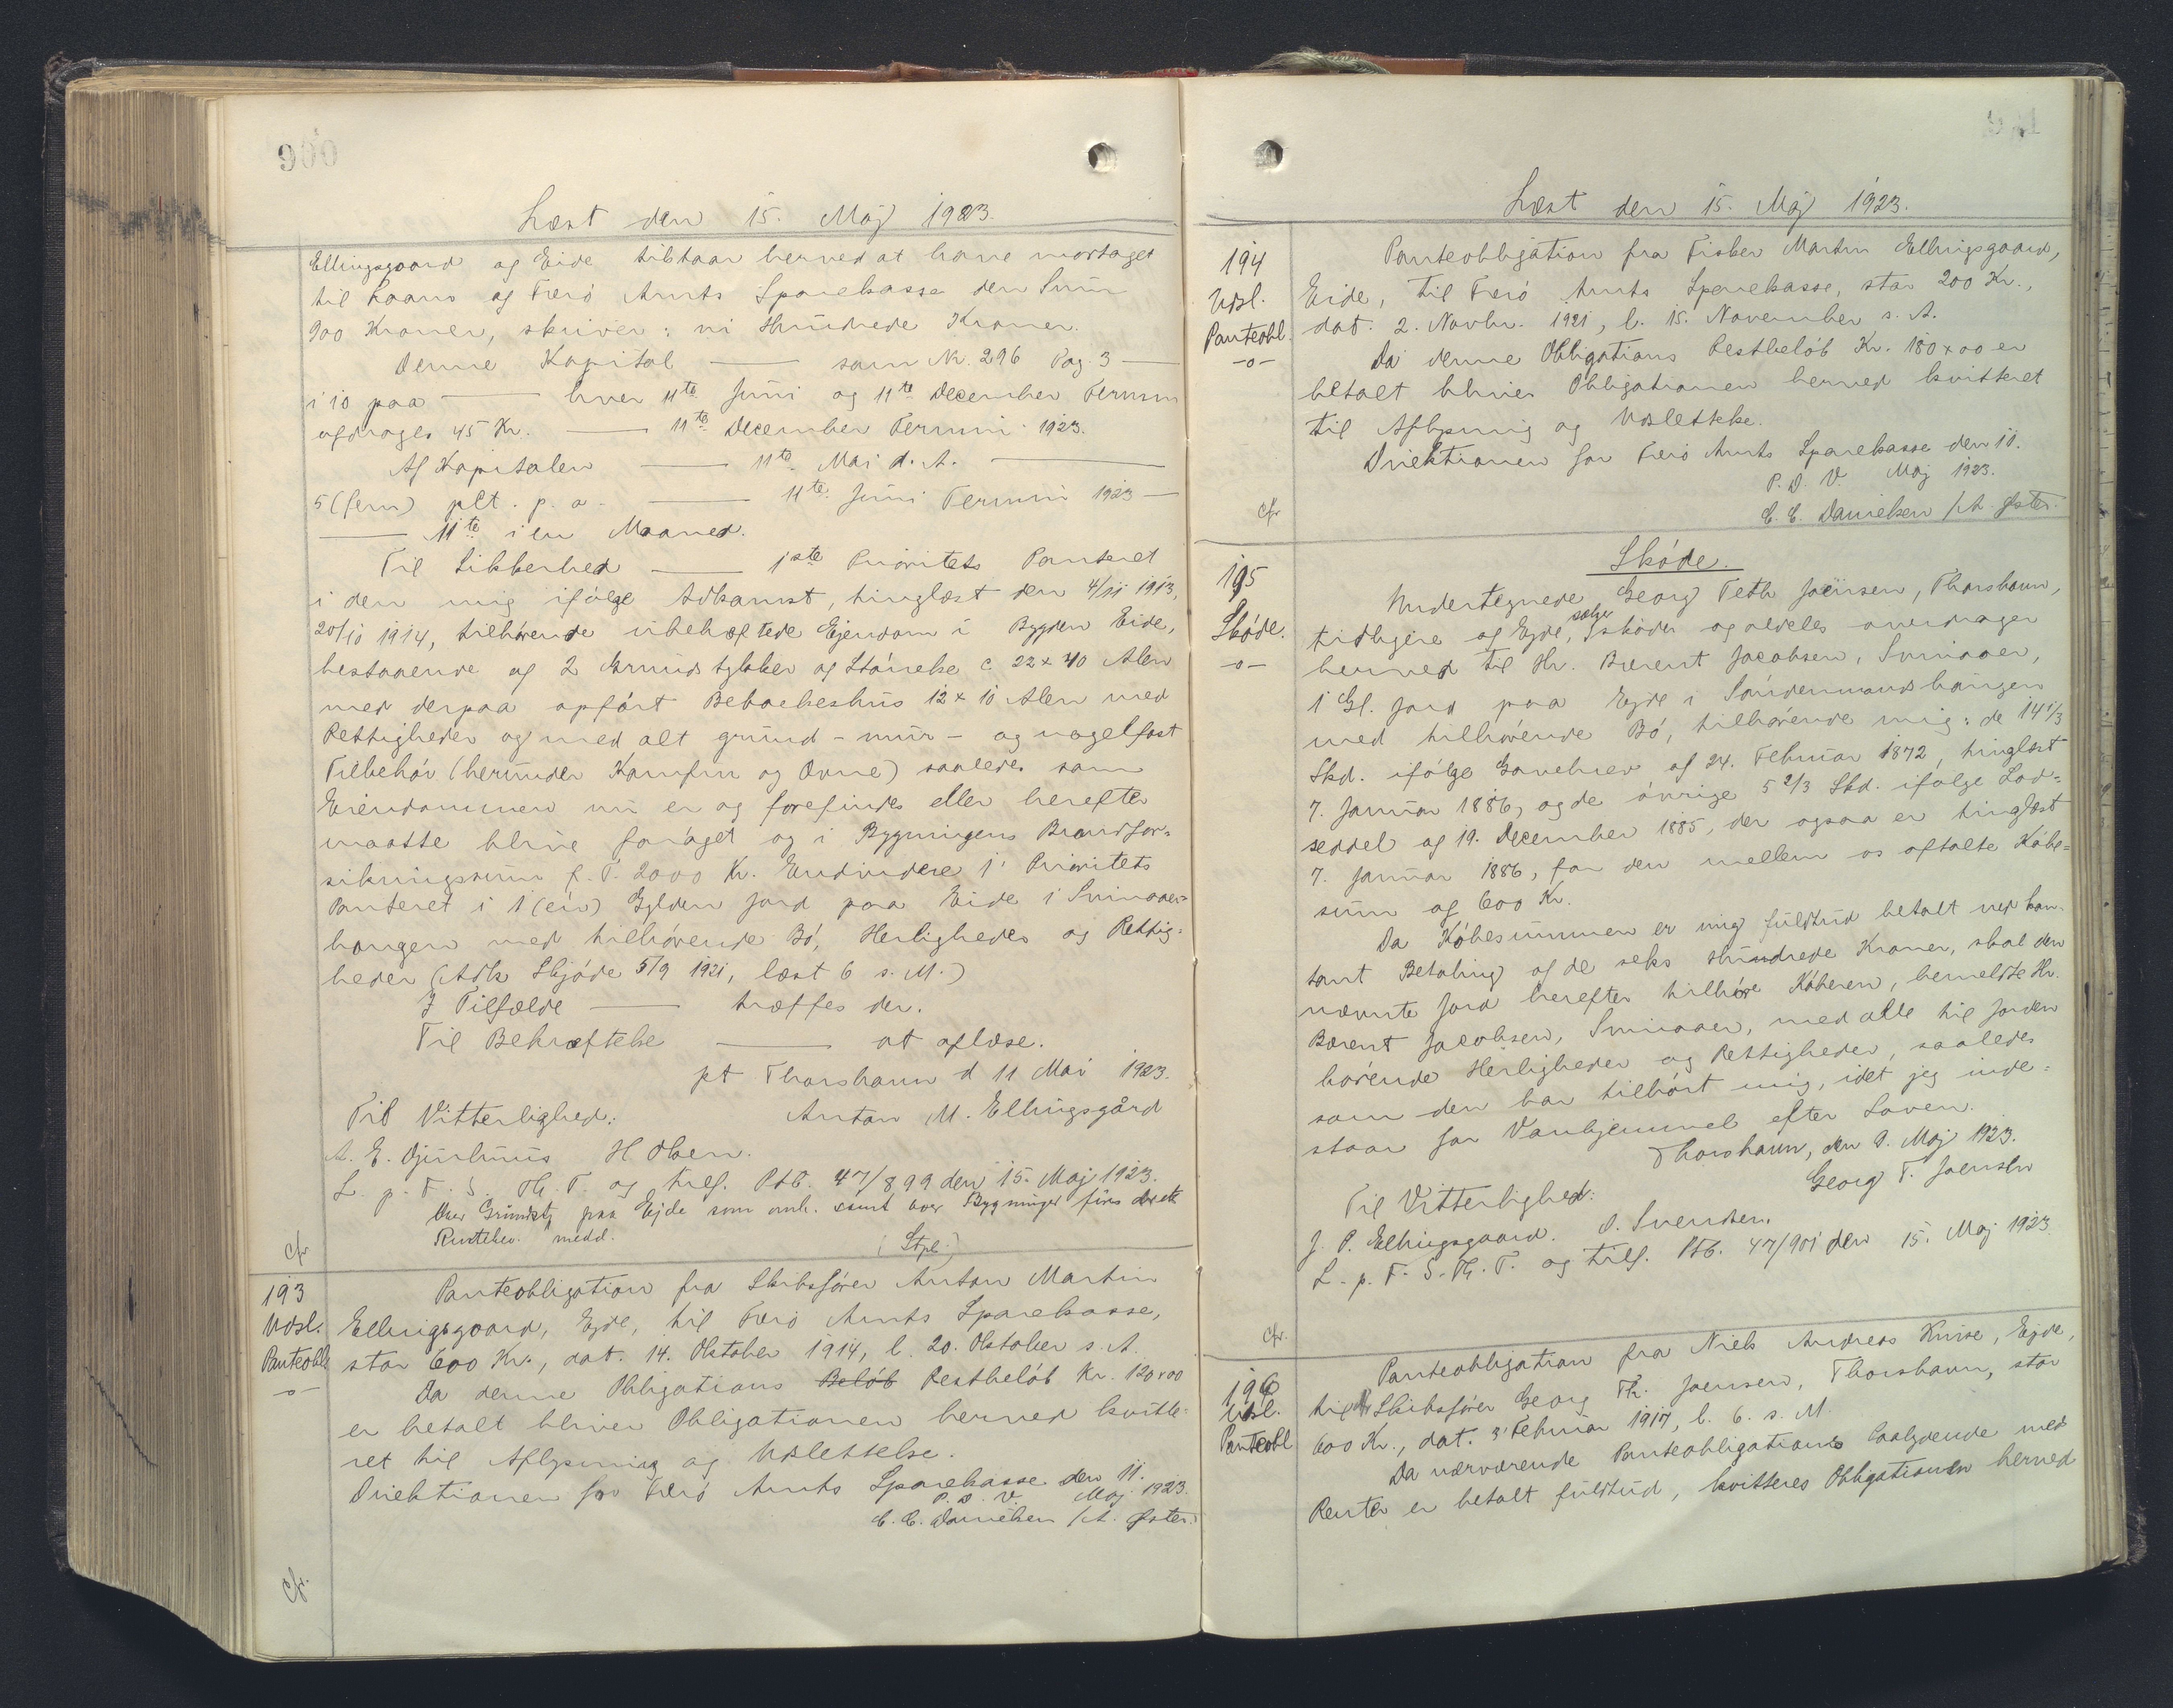 900
Læst den 15. Maj 1923.
Ellingsgaard og Eide tilstaar herved at have modtaget
til Laans af Færø Amts Sparekasse den Sum
900 Kroner, skriver: ni Hundrede Kroner.
Denne Kapital — som Nr. 296 Pag. 3 —
i 10 paa — hver 11te Juni og 11te December Termin
afdrages 45 Kr. — 11te December Termin 1923.
Af Kapitalen — 11te Mai d. A. —
5 (fem) pct. p. a. — 11te Juni Termin 1923 —
— 11te i en Maaned.
Til Sikkerhed — 1ste Prioritets Panteret
i den mig ifølge Adkomst, tinglæst den 4/11 1913,
20/10 1914, tilhørende ubehæftede Ejendom i Bygden Eide,
bestaaende af 2 Grundstykker af Størrelse c. 22 x 40 Alen
med derpaa opført Beboelseshus 12 x 10 Alen med
Rettigheder og med alt grund- mur- og nagelfast
Tilbehør (herunder Komfur og Ovne) saaledes som
Eiendommen nu er og forefindes eller herefter
maatte blive forøget og i Bygningens Brandfor-
sikringssum p. T. 2000 Kr. Endvidere 1' Prioritets
Panteret i 1 (een) Gylden Jord paa Eide i Svinaaer-
haugen med tilhørende Bø, Herligheder og Rettig-
heder (Adk Skjøde 5/9 1921, læst 6 s. M.)
I Tilfælde — træffes der.
Til Bekræftelse — at aflæse.
pt Thorshavn d 11 Mai 1923.
Til Vitterlighed: Anton M. Ellingsgård
A. E. Djurhuus H Olsen.
L. p. F. S. Th. T. og tilf. PtB. 47/899 den 15. Maj 1923.
Over Grundstk paa Ejde som omh. samt over Bygninger føres
medd.
(Stpl.)
cfr
193
Udsl.
Panteobl.
-o-
Panteobligation fra Skibsfører Anton Martin
Ellingsgaard, Ejde, til Færø Amts Sparekasse,
stor 600 Kr., dat. 14. Oktober 1914, l. 20. Oktober s. A.
Da denne Obligations Beløb Restbeløb Kr. 120x00
er betalt bliver Obligationen herved kvitte-
ret til Aflysning og Udslettelse.
Direktionen for Færø Amts Sparekasse den 11.
P. D. V. Maj 1923.
C. C. Danielsen /A. Øster.
cfr.
Læst den 15. Maj 1923.
194
Udsl.
Panteobl.
-o-
Panteobligation fra Fisker Martin Ellingsgaard,
Eide, til Færø Amts Sparekasse, stor 200 Kr.,
dat. 2. Novbr. 1921, l. 15. November s. A.
Da denne Obligations Restbeløb Kr. 180x00 er
betalt bliver Obligationen herved kvitteret
til Aflysning og Udslettelse.
Direktionen for Færø Amts Sparekasse den 11.
P. D. V. Maj 1923.
C. C. Danielsen /A. Øster.
cfr
195
Skøde.
-o-
Skøde.
Undertegnede Georg Peth Joensen, Thorshavn,
tidligere af Ejde, sælger skøder og aldeles overdrager
herved til Hr. Barent Jacobsen, Svinaaer,
1 Gl. Jord paa Ejde i Søndermandshaugen
med tilhørende Bø, tilhørende mig: de 14 1/3
Skd. ifølge Gavebrev af 24. Februar 1872, tinglæst
7. Januar 1886, og de øvrige 5 2/3 Skd. ifølge Lod-
seddel af 19. December 1885, der ogsaa er tinglæst
7. Januar 1886, for den mellem os aftalte Købe-
sum af 600 Kr.
Da Købesummen er mig fuldtud betalt ved kon-
tant Betaling af de seks Hundrede Kroner, skal den
nævnte Jord herefter tilhøre Køberen, bemeldte Hr.
Barent Jacobsen, Svinaaer, med alle til Jorden
hørende Herligheder og Rettigheder, saaledes
som den har tilhørt mig, idet jeg inde-
staar for Vanhjemmel efter Loven.
Thorshavn, den 9. Maj 1923.
Georg T. Joensen
Til Vitterlighed:
J. P. Ellingsgaard. O. Svendsen.
L. p. F. S. Th. T. og tilf. PtB. 47/901 den 15. Maj 1923.
cfr.
196
Udsl.
Panteobl
Panteobligation fra Niels Andreas Kruse, Ejde,
til Hr Skibsfører Georg Th. Joensen, Thorshavn, stor
600 Kr., dat. 3' Februar 1917, l. 6. s. M.
Da nærværende Panteobligations Paalydende med
Renter er betalt fuldtud, kvitteres Obligationen herved